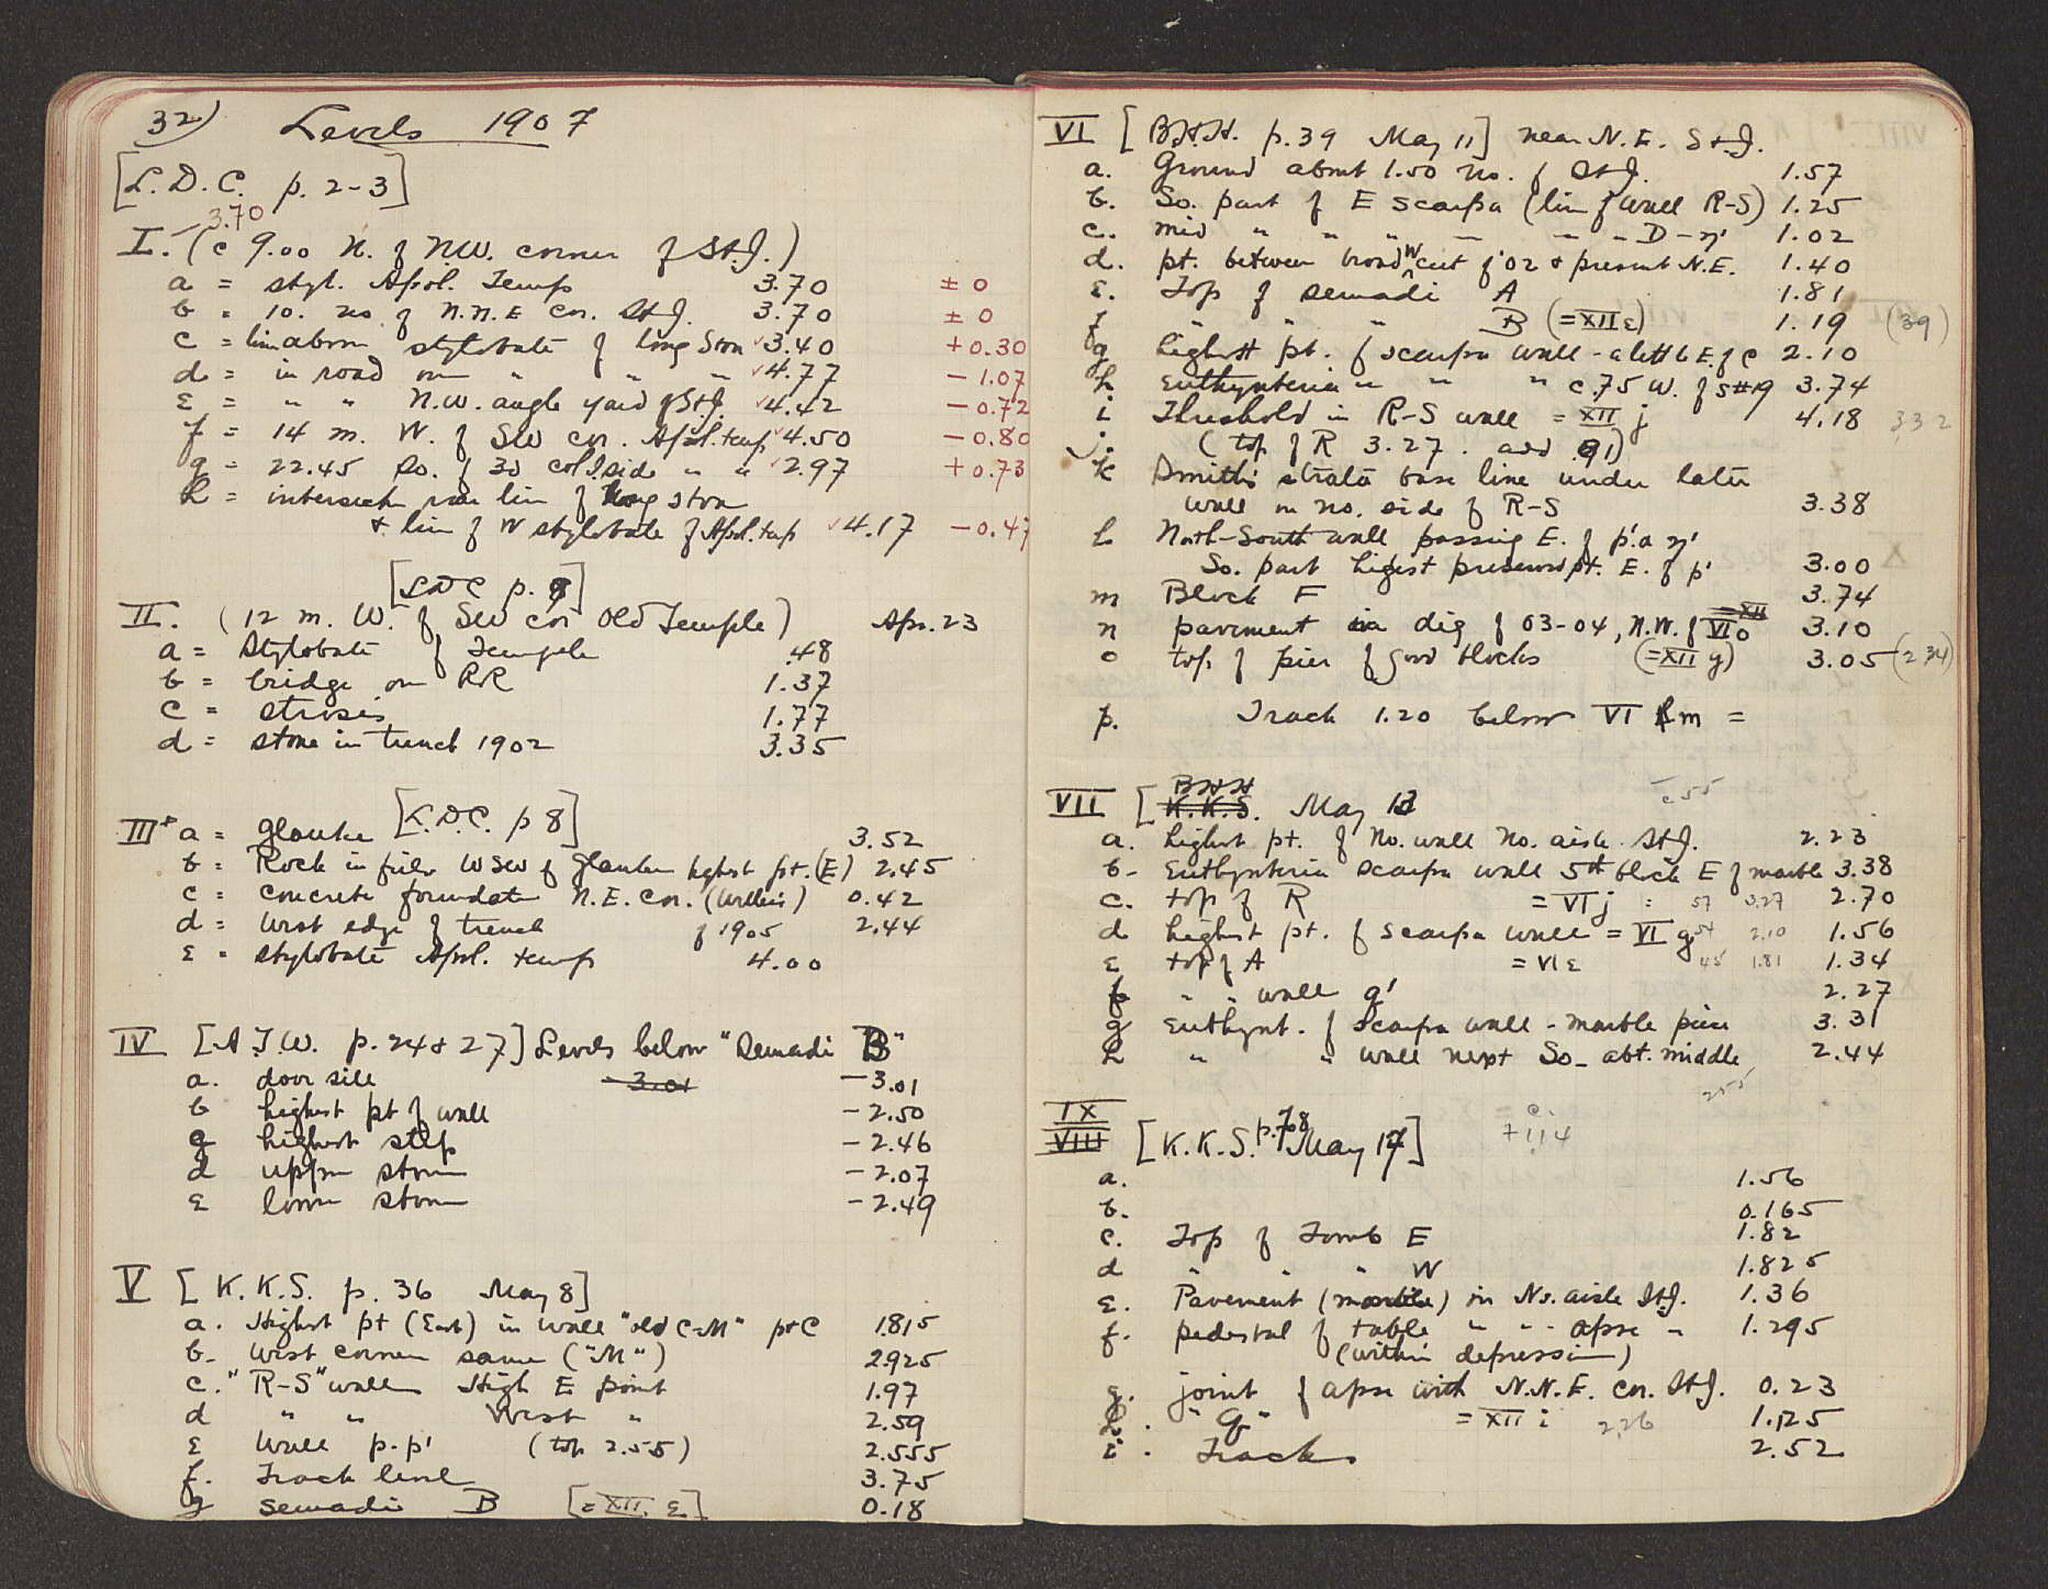 32)
Levels 1907
[L.D.C. p. 2-3]
- 3.70
I. (c 9.00 N. of N.W. corner of St.J.)
a = styl. Apol. Temp 3.70 ± 0
b = 10. no. of N.N.E cor. St.J. 3.70 ± 0
c = lin above stylobate of long Stoa ✓3.40 +0.30
d = in road on " " " ✓4.77 -1.07
ε = " " N.W. angle yard of St.J. ✓4.42 -0.72
f = 14 m. W. of SW cor. Apol. temp ✓4.50 -0.80
g = 22.45 So. of 3d col. S. side " " ✓2.97 +0.73
h = intersectn rear lin of long stoa
+ lin of W stylobate of Apol. temp ✓4.17 -0.47
[LDC p. 9]
II. (12 m. W. of SW cor Old Temple) Apr. 23
a = Stylobate of Temple .48
b = bridge on RR 1.37
c = strosis 1.77
d = stone in trench 1902 3.35
[L.D.C. p 8]
III+ a = Glauke 3.52
b = Rock in field WSW of Glauke highest pt. (E) 2.45
c = concrete foundatn N.E. cor. 0.42
d = West edge of trench of 1905 2.44
ε = stylobate Apol. temp 4.00
IV [A.J.W. p. 24 & 27] Levels below "Semadi B"
a. door sill -3.01 -3.01
b highest pt of wall -2.50
g highest step -2.46
d upper stone -2.07
ε lower stone -2.49
V [K.K.S. p. 36 May 8]
a. Highest pt (East) in wall "old C-M" pt C 1.815
b- West corner same ("M") 2.925
c. "R-S" wall High E point 1.97
d " " West " 2.59
ε Wall p-p' (top 2.55) 2.555
f. Track level 3.75
g semadi B [= XII. ε] 0.18
VI [B.H.H. p. 39 May 11] near N.E. St.J.
a. Ground about 1.50 no. of St.J. 1.57
b. So. part of E scarpa (lin of wall R-S) 1.25
c. mid " " " " " D-η' 1.02
d. pt. between broad W cut of '02 + present N.E. 1.40
ε. Top of semadi A 1.81
f " " " B (=XII ε) 1.19 (39)
g highest pt. of scarpa wall - a little E. of c 2.10
h Euthynteria " " " c.75 W. of S#19 3.74
i Threshold in R-S wall = XII j 4.18 332
j. (top of R 3.27. add .91)
k Smith's strata base line under later
wall on no. side of R-S 3.38
l North-South wall passing E. of p'. a η'
So. part highest preserved pt. E. of p' 3.00
m Block F 3.74
n pavement in dig of 03-04, N.W. of VI o =XII 3.10
o top of pier of good blocks (=XII g) 3.05 (234)
p. Track 1.20 below VI m =
c 55
VII [K.K.S. BHH May 13
a. highest pt. of No. wall No. aisle St.J. 2.23
b- Euthynteria scarpa wall 5th block E of marble 3.38
c. top of R = VI j = 57 3.27 2.70
d highest pt. of scarpa wall = VI g 54 2.10 1.56
ε top of A = VI ε 45 1.81 1.34
f " " wall q' 2.27
g Euthynt. of Scarpa wall - marble pier 3.31
h " " wall next So- abt. middle 2.44
255
IX
VIII [K.K.S. p.78 May 17]
c.
+ 114
a. 1.56
b. 0.165
c. Top of Tomb E 1.82
d " " " W 1.825
ε. Pavement (marble) in No. aisle St.J. 1.36
f. pedestal of table " " " apse " 1.295
(within depression)
g. joint of apse with N.N.E. cor. St.J. 0.23
h. "G" = XII i 2.26 1.125
i. Track 2.52